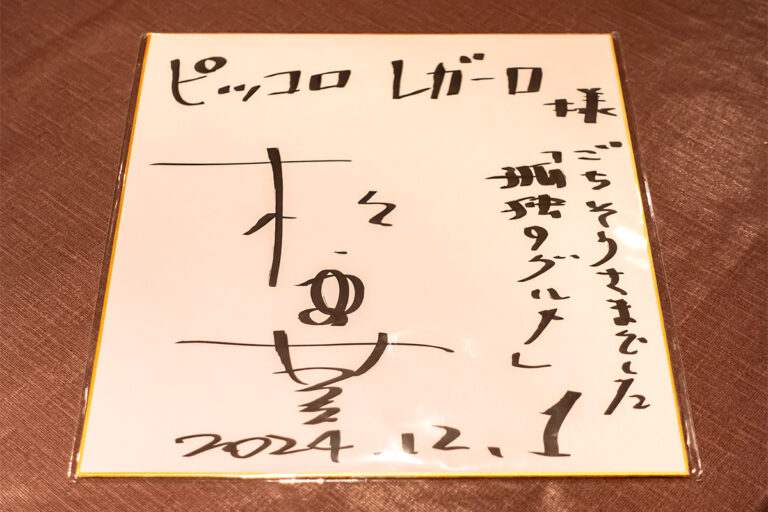 ピッコロ レガーロ様
ごちそうさまでした
「孤独のグルメ」
2024.12.1